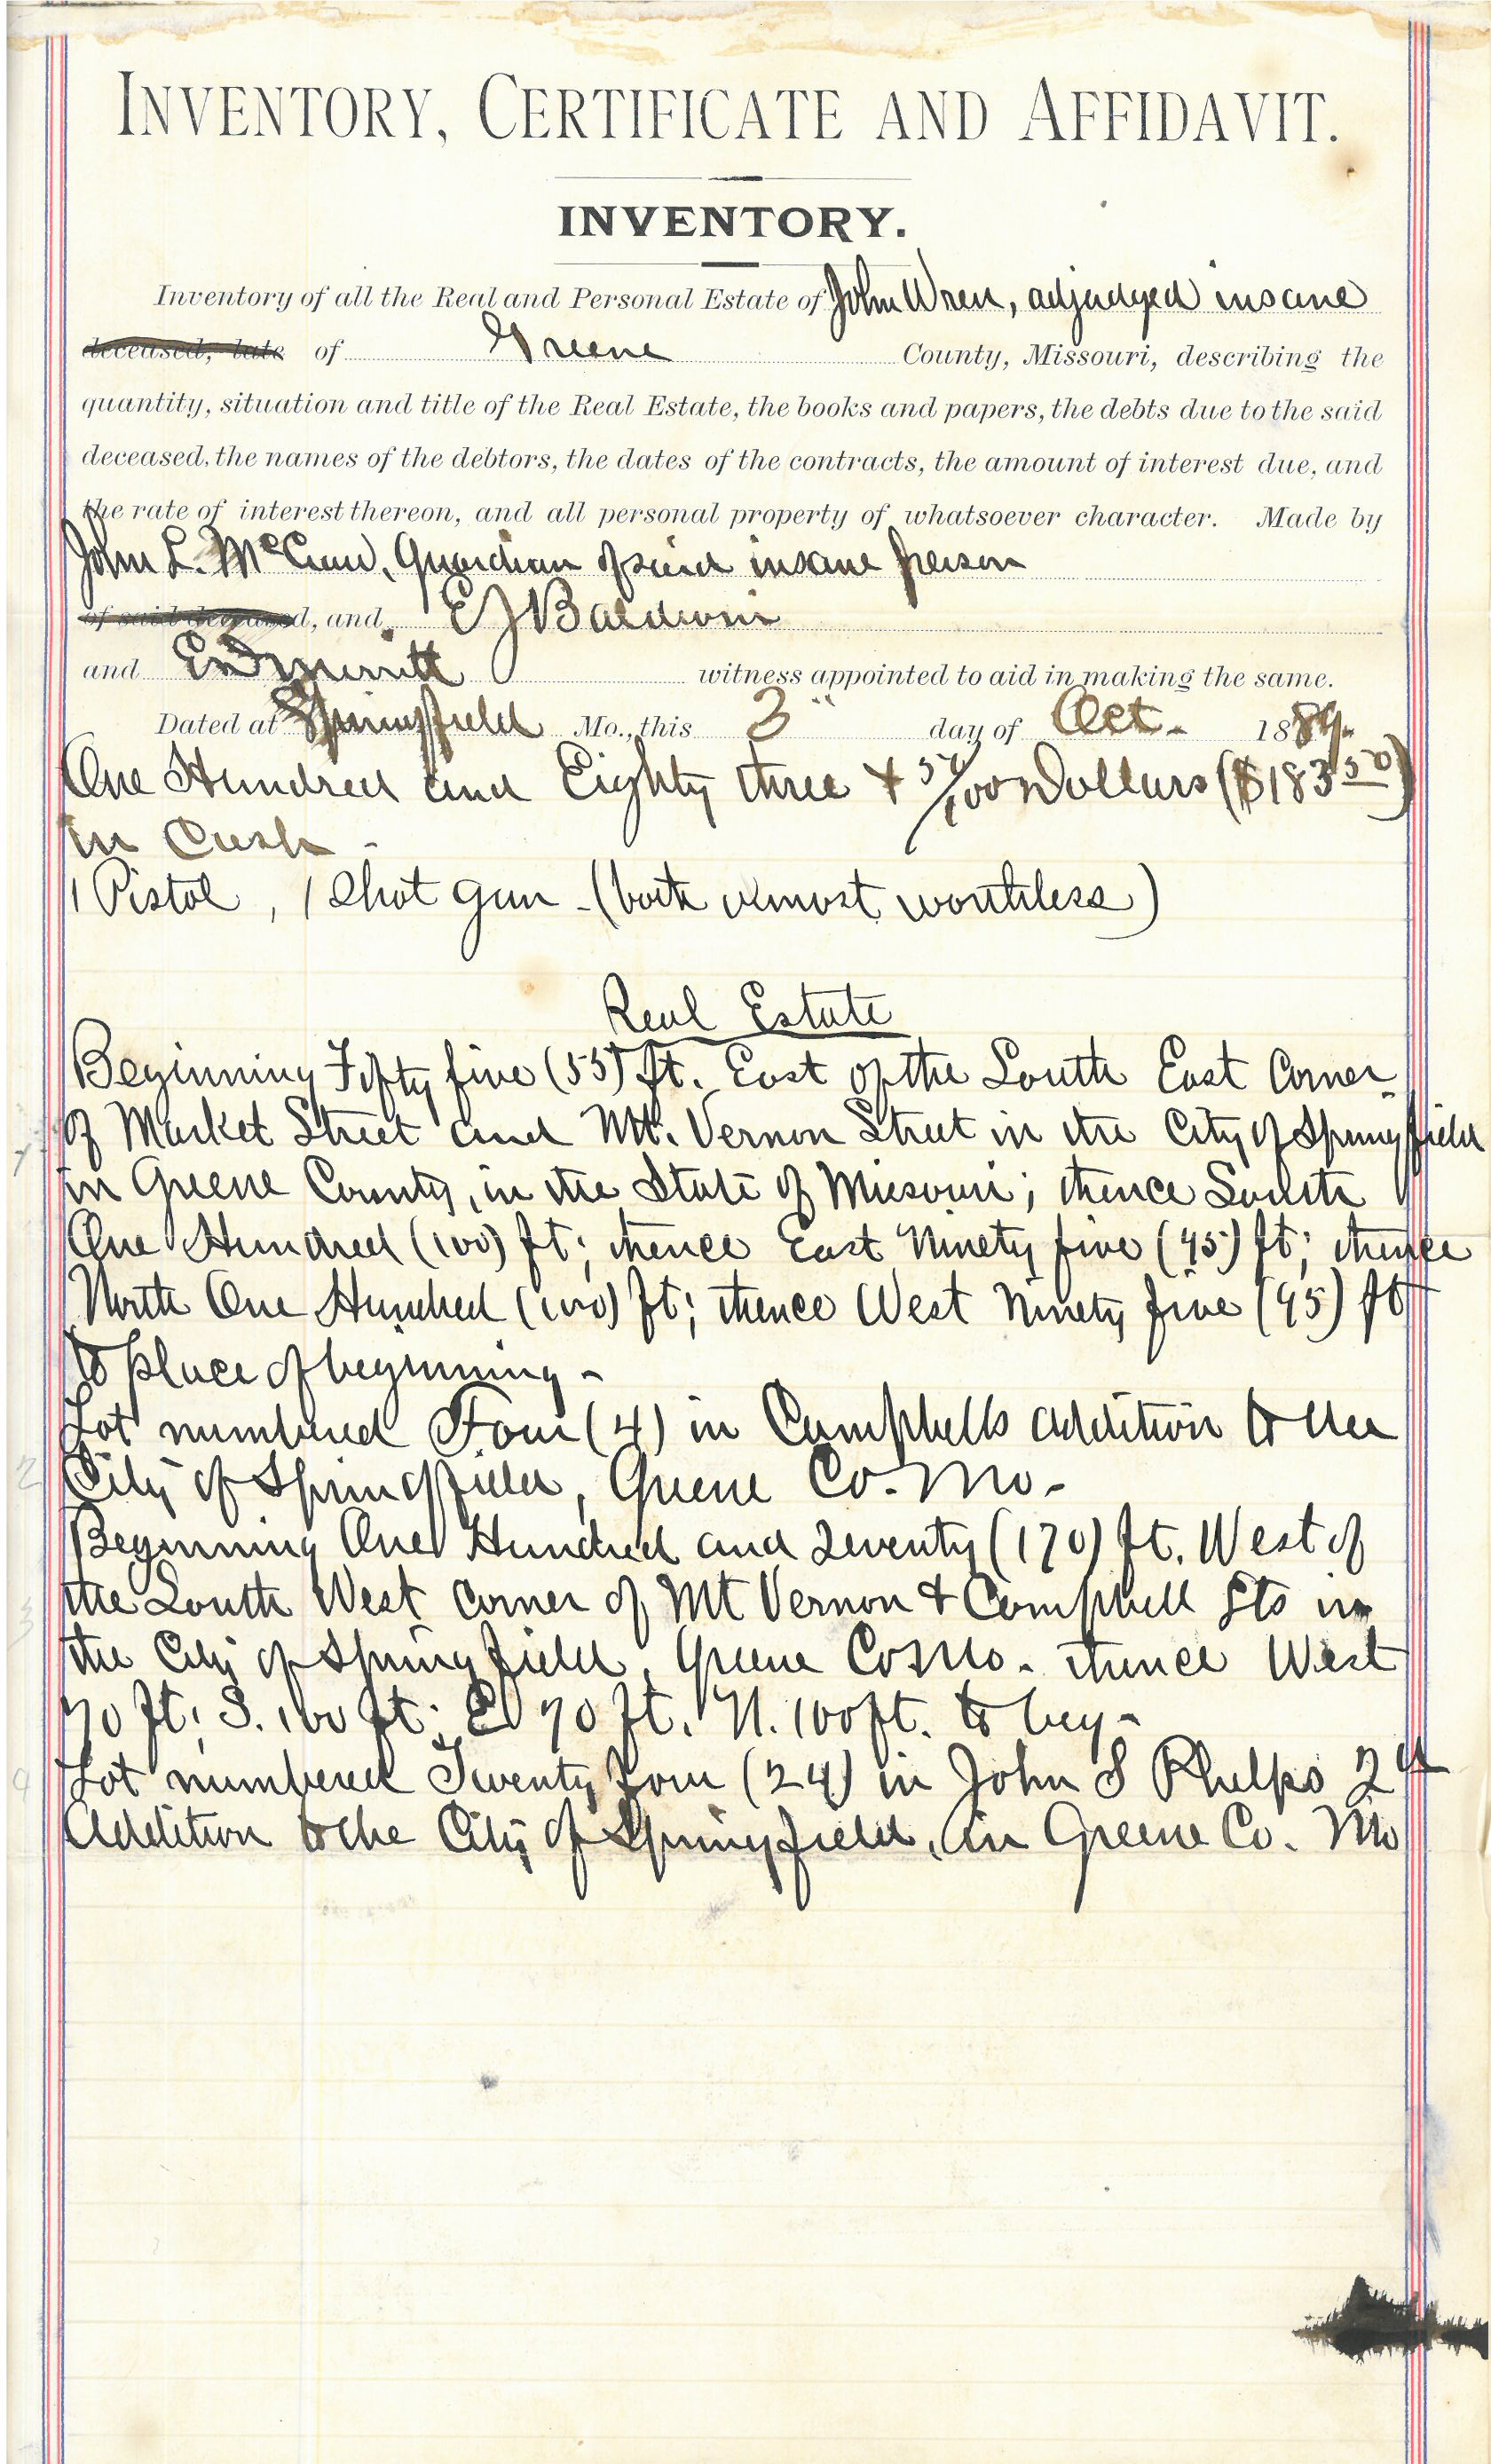 INVENTORY, CERTIFICATE AND AFFIDAVIT.
INVENTORY.
Inventory of all the Real and Personal Estate of John Wren, adjudged insane
deceased, late of Greene County, Missouri, describing the
quantity, situation and title of the Real Estate, the books and papers, the debts due to the said
deceased, the names of the debtors, the dates of the contracts, the amount of interest due, and
the rate of interest thereon, and all personal property of whatsoever character. Made by
John L. McCraw, Guardian of said insane person
of said deceased, and E J Baldwin
and Merritt witness appointed to aid in making the same.
Dated at Springfield Mo., this 3" day of Oct. 1889.
One Hundred and Eighty three & 50/100 Dollars ($183 50)
in Cash -
1 Pistol, 1 Shot gun - (both almost worthless)
Real Estate
Beginning Fifty five (55) ft. East of the South East Corner
of Market Street and Mt. Vernon Street in the City of Springfield
1
in Greene County, in the State of Missouri; thence South
One Hundred (100) ft; thence East Ninety five (95) ft; thence
North One Hundred (100) ft; thence West Ninety five (95) ft
to place of beginning -
Lot numbered Four (4) in Campbells addition to the
2 City of Springfield, Greene Co. Mo -
Beginning One Hundred and Seventy (170) ft. West of
3 the South West corner of Mt Vernon & Campbell Sts in
the City of Springfield, Greene Co Mo. thence West
70 ft; S. 100 ft; E 70 ft. N. 100 ft. to beg -
4 Lot numbered Twenty four (24) in John S Phelps 2d
Addition to the City of Springfield, in Greene Co. Mo